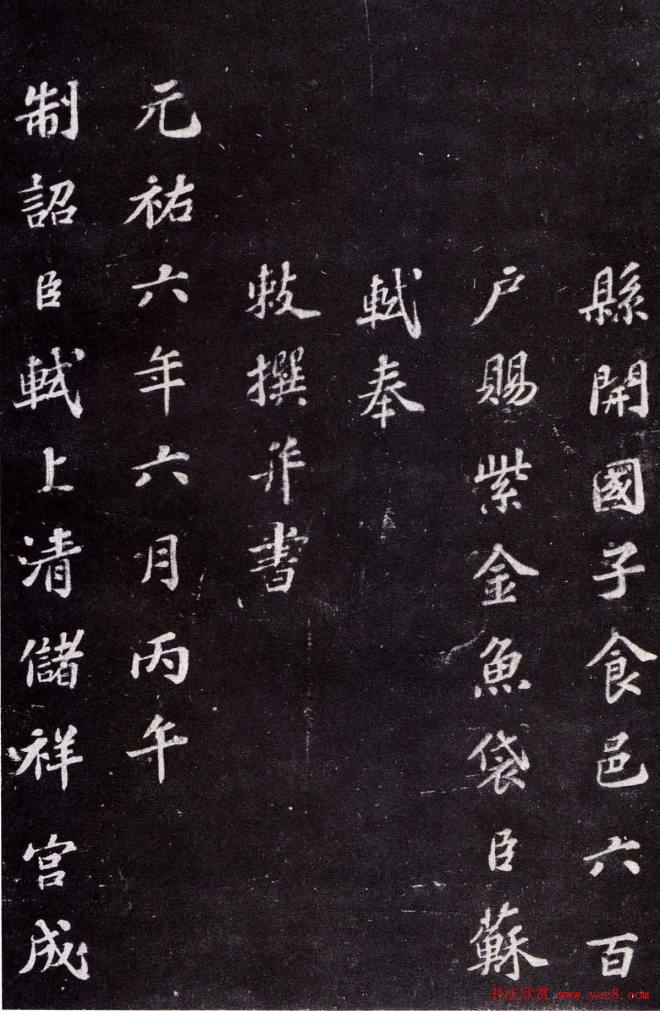 縣開國子食邑六百
户賜紫金魚袋臣蘇
軾奉
敕撰并書
元祐六年六月丙午
制詔臣軾上清儲祥宮成
书法欣赏 www.yac8.com